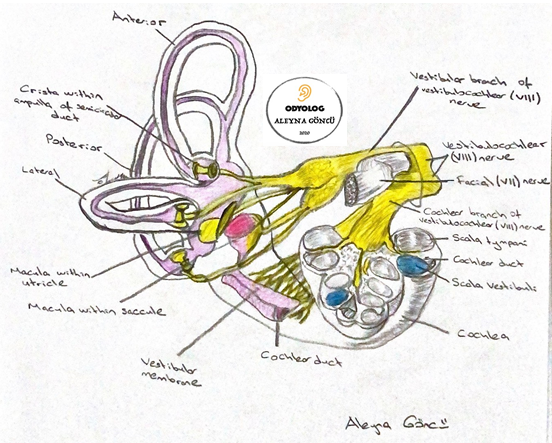 Anterior
Crista within
ampulla of semicircular
duct
Posterior
Lateral
Macula within
utricle
Macula within saccule
Vestibular
membrane
Cochlear duct
ODYOLOG
ALEYNA GÖNCÜ
2020
Vestibular branch of
vestibulocochlear (VIII)
nerve
Vestibulocochlear
(VIII) nerve
Facial (VII) nerve
Cochlear branch of
vestibulocochlear (VIII) nerve
Scala tympani
Cochlear duct
Scala vestibuli
Cochlea
Aleyna Göncü